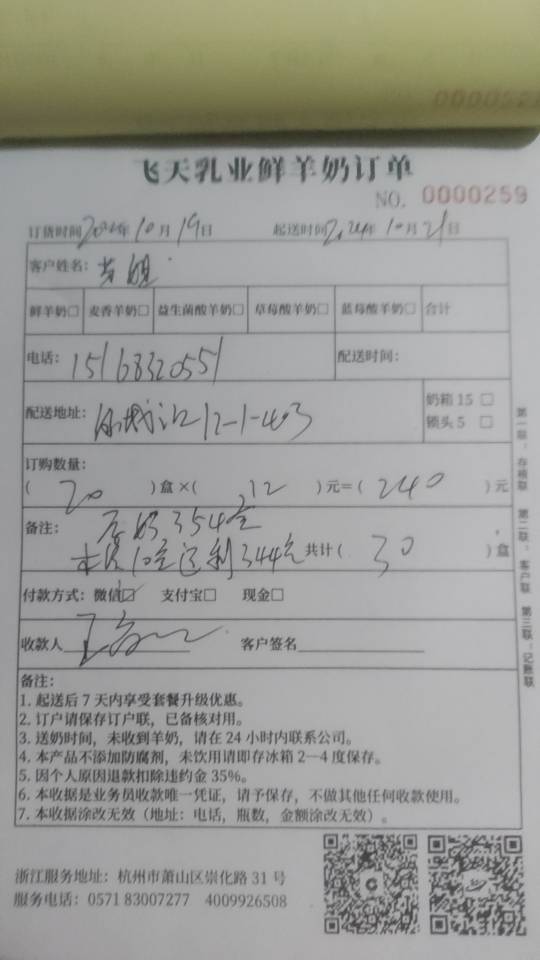 飞天乳业鲜羊奶订单
NO. 0000259
订货时间2024年10月19日 起送时间2024年10月21日
客户姓名：
鲜羊奶□ 麦香羊奶□ 益生菌酸羊奶□ 草莓酸羊奶□ 蓝莓酸羊奶□ 合计
电话：15168320551 配送时间：
配送地址： 12-1-403 奶箱 15 □
锁头 5 □
订购数量：
( 20 )盒×( 12 )元=( 240 )元
备注： 354盒
本次10盒 344盒 共计( 30 )盒
付款方式：微信☑ 支付宝□ 现金□
收款人 客户签名
备注：
1. 起送后 7 天内享受套餐升级优惠。
2. 订户请保存订户联，已备核对用。
3. 送奶时间，未收到羊奶，请在 24 小时内联系公司。
4. 本产品不添加防腐剂，未饮用请即存冰箱 2—4 度保存。
5. 因个人原因退款扣除违约金 35%。
6. 本收据是业务员收款唯一凭证，请予保存，不做其他任何收款使用。
7. 本收据涂改无效（地址：电话，瓶数，金额涂改无效）。
第一联：存根联 第二联：客户联 第三联：记账联
浙江服务地址：杭州市萧山区崇化路 31 号
服务电话：0571 83007277 4009926508